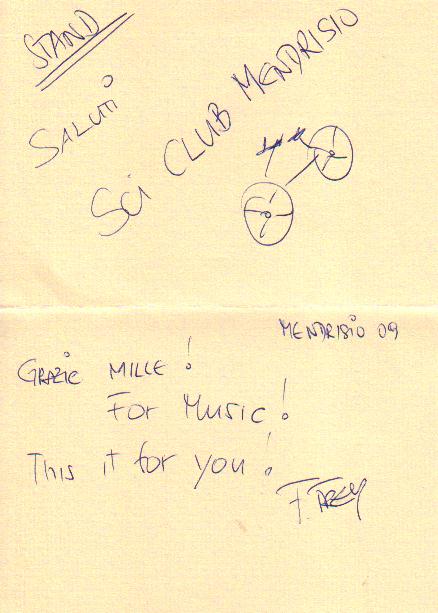 STAND
SALUTI
SCI CLUB MENDRISIO
MENDRISIO 09
GRAZIE MILLE!
FOR MUSIC!
This it for you!